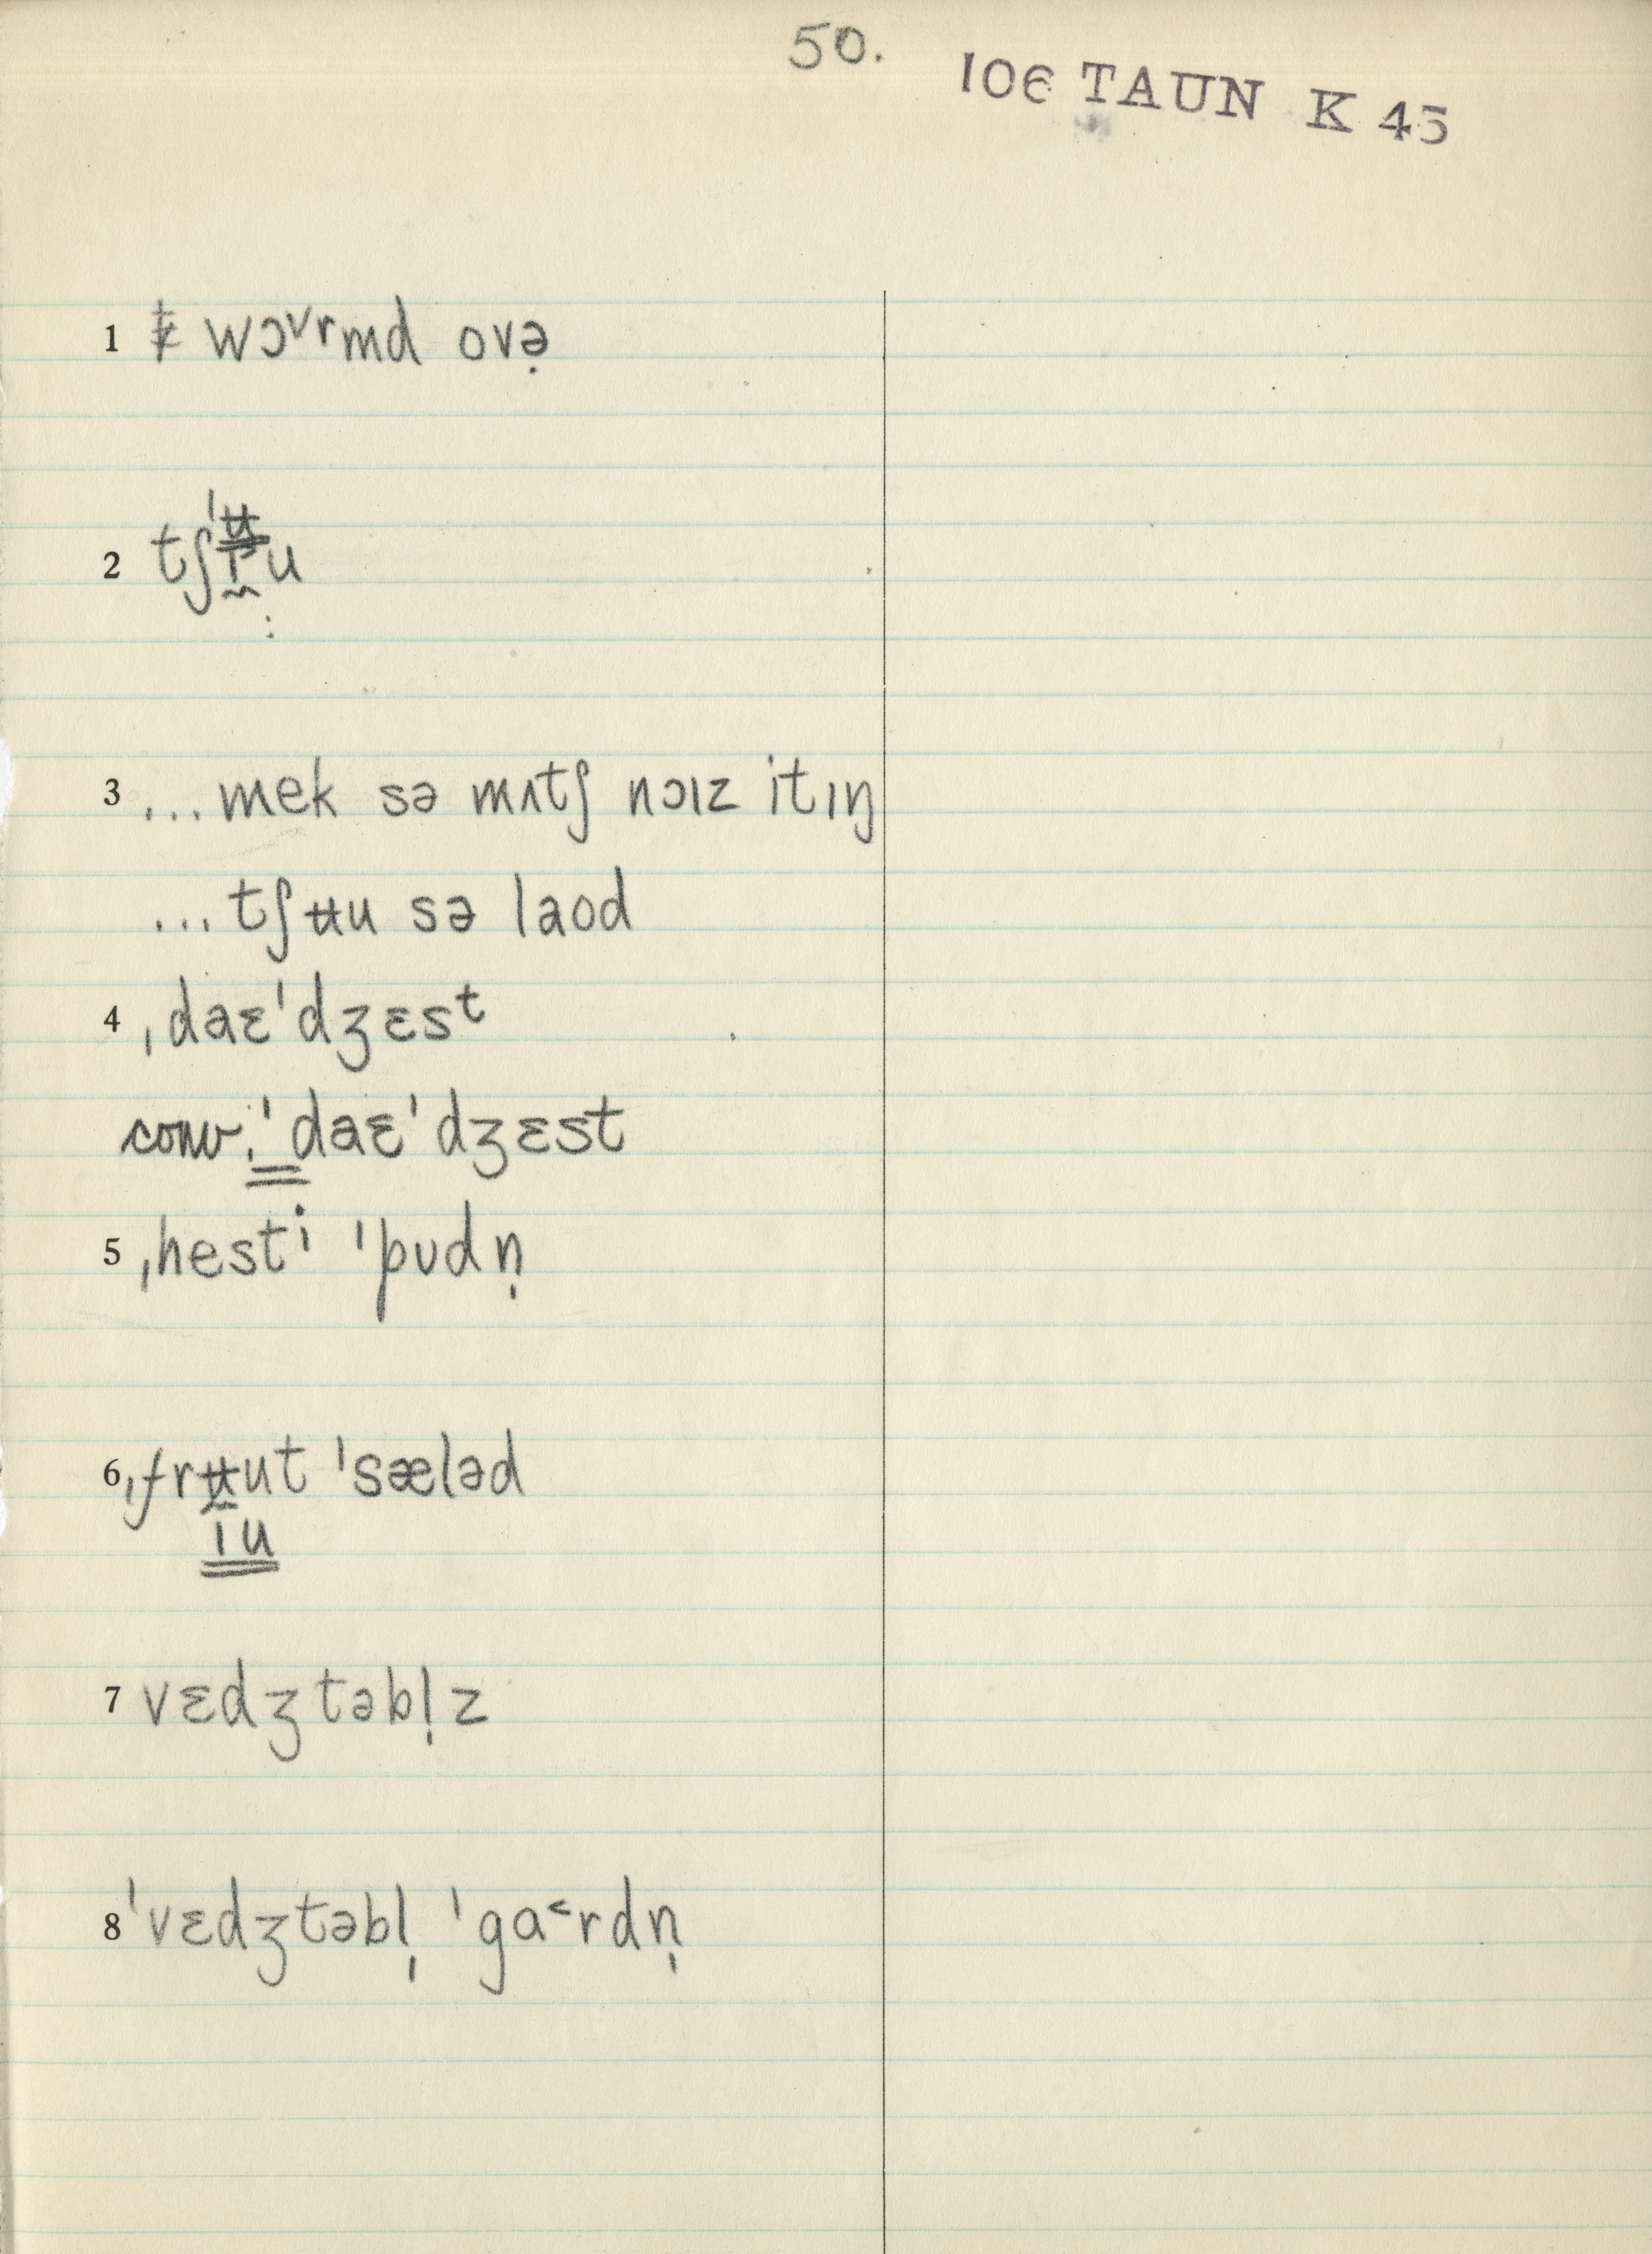 50.
106 TAUN K 45
1 ⱡ wɔ˅rmd ovə̣
2 tʃˈɪ̵u
3 ... mek sə mʌtʃ nɔɪz itɪŋ
... tʃʉu sə laod
4 ˌdaɛˈdʒɛsᵗ
conv. ˈdaɛˈdʒɛst
5 ˌhestⁱ ˈpʊdn̩
6 ˌfrʉut ˈsæləd
ɪu
7 vɛdʒtəbl̩z
8 ˈvɛdʒtəbl̩ ˈga˂rdn̩